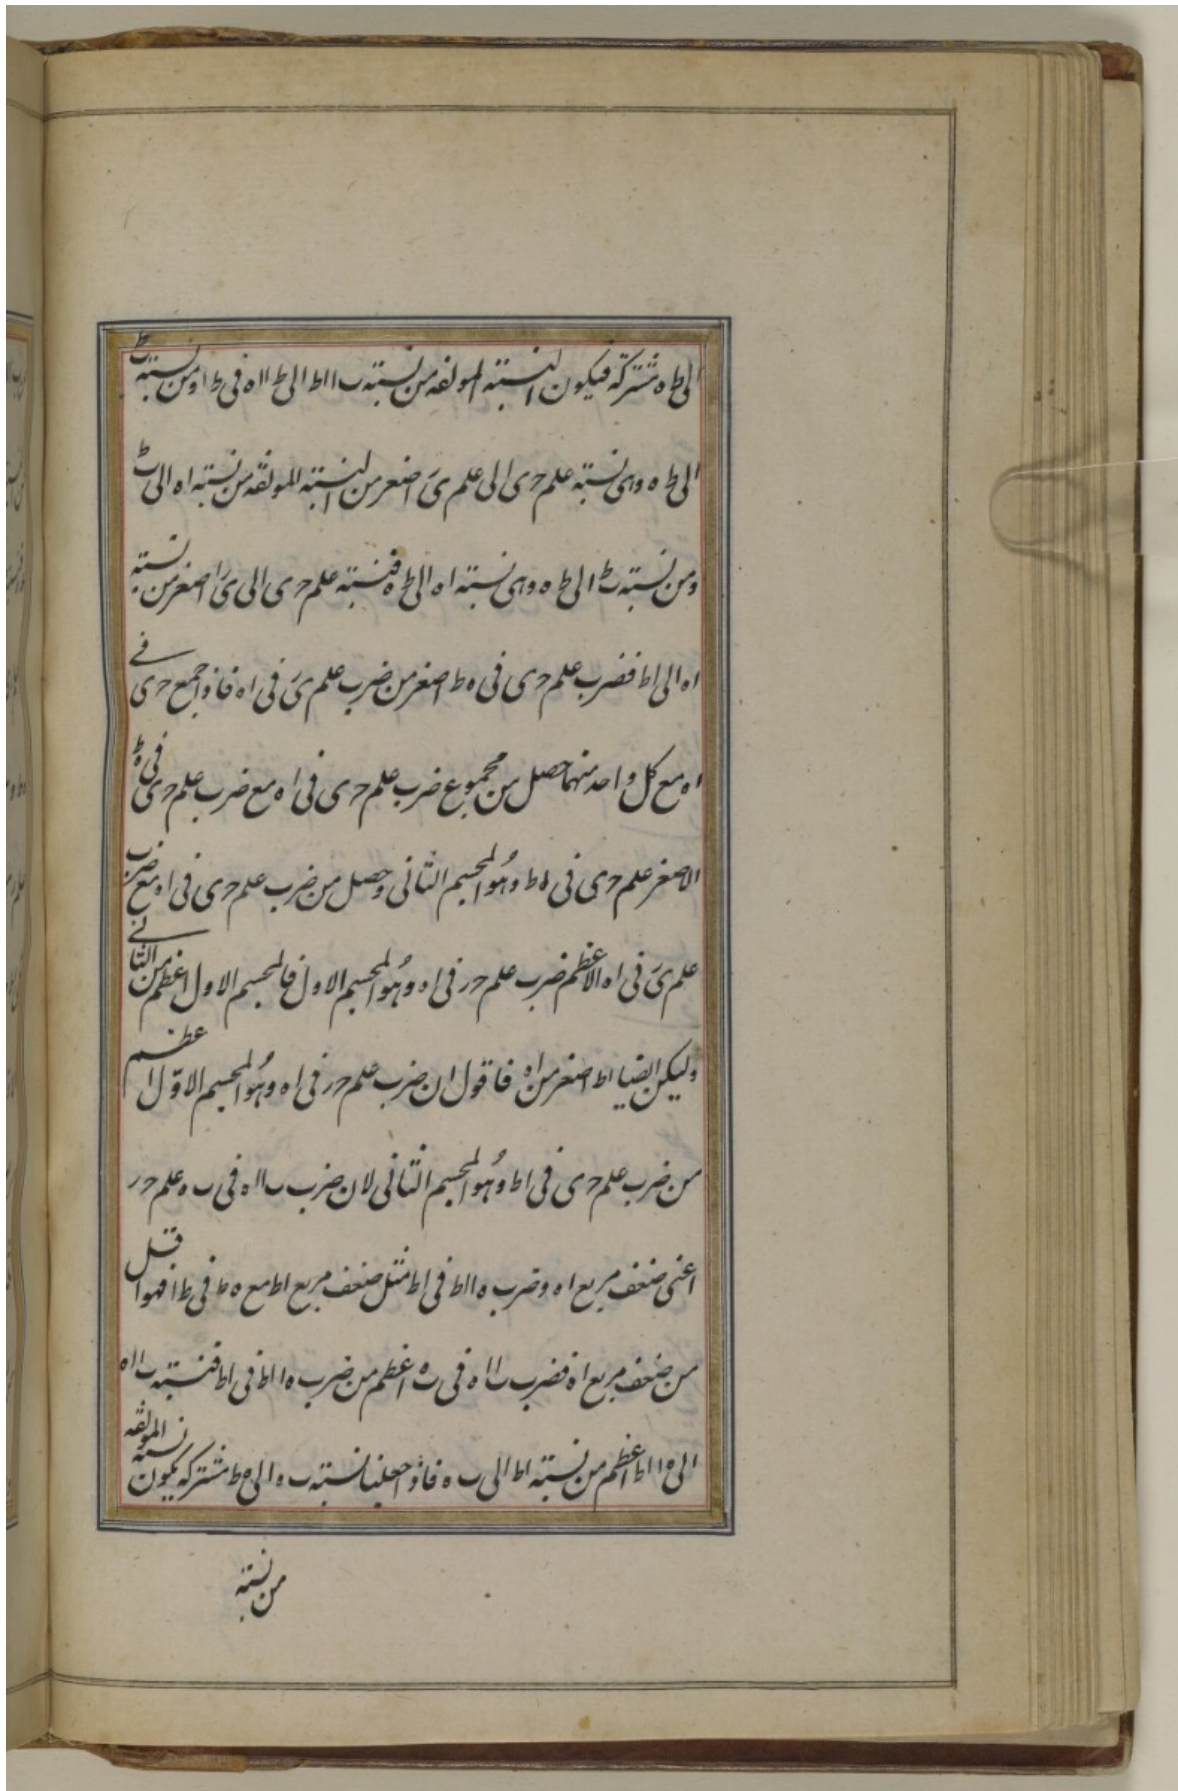 الی ط ه مشترکة فیکون النسبة المولفه من نسبته ب ا اط الی ط ا اه فی ط ا و من نسبته ط ا
الی ط ه و هی نسبته علم حری الی علم ی اصغر من النسبة المولفه من نسبته اه الی ط ا
و من نسبته ط ا الی ط ه و هی نسبته اه الی ط ه فنسبته علم حری الی ی اصغر من نسبته
اه الی اط فضرب علم حری فی ه ط اصغر من ضرب علم ی فی اه فاذا جمع حری فی
اه مع کل واحد منهما حصل من مجموع ضرب علم حری فی اه مع ضرب علم حری فی ه ط
الاصغر علم حری فی اط و هو المجسم الثانی و حصل من ضرب علم حری فی اه مع ضرب
علم ی فی اه الاعظم ضرب علم حر فی اه و هو المجسم الاول فالمجسم الاول اعظم من الثانی
ولیکن ایضا اط اصغر من اه فاقول ان ضرب علم حر فی اه و هو المجسم الاول اعظم
من ضرب علم حری فی اط و هو المجسم الثانی لان ضرب ب ا اه فی ب ه علم حر
اعنی ضعف مربع اه و ضرب ه ا اط فی اط مثل ضعف مربع اط مع ه ط فی ط ا فهو اقل
من ضعف مربع اه فضرب ب ا اه فی ب ه اعظم من ضرب ه ا اط فی اط فنسبته ب ا اه
الی ه ا اط اعظم من نسبته اط الی ب ه فاذا جعلنا نسبته ب ه الی ه ط مشترکه یکون نسبته المولفه
من نسبته